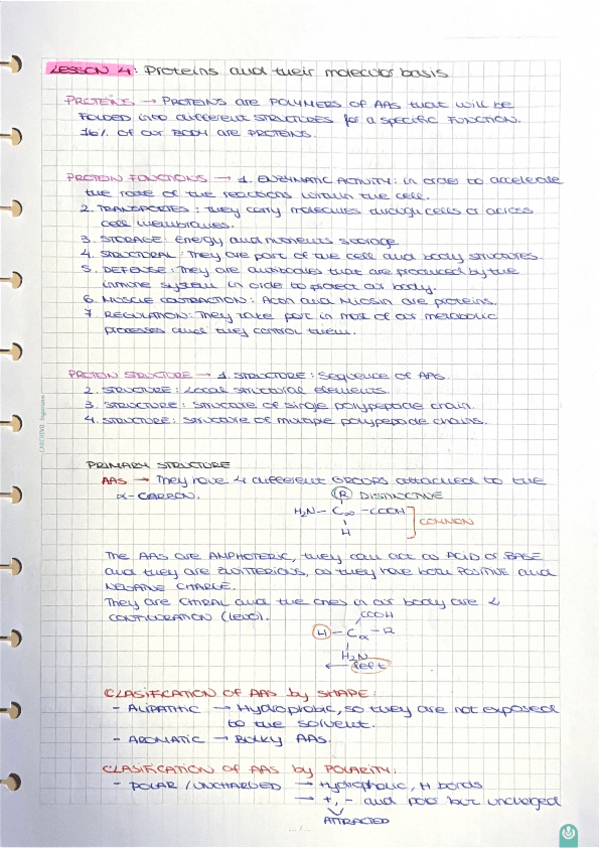 LESSON 4: Proteins and their molecular basis
PROTEINS → PROTEINS are POLYMERS OF AAS that will be
FOLDED into different STRUCTURES for a specific FUNCTION.
16% OF our BODY are PROTEINS.
PROTEIN FUNCTIONS → 1. ENZYMATIC ACTIVITY: in order to accelerate
the rate of the reactions within the cell.
2. TRANSPORTES: they carry molecules through cells or across
cell membranes.
3. STORAGE: Energy and nutrients storage
4. STRUCTURAL: They are part of the cell and body structures.
5. DEFENSE: They are antibodies that are produced by the
inmune system in order to protect our body.
6. MUSCLE CONTRACTION: Actin and Miosin are proteins.
7. REGULATION: They take part in most of our metabolic
processes and they control them.
PROTEIN STRUCTURE → 1. STRUCTURE: Sequence of AAS.
2. STRUCTURE: Local structural elements.
3. STRUCTURE: Structure of single polypeptide chain.
4. STRUCTURE: Structure of multiple polypeptide chains.
PRIMARY STRUCTURE
AAS → They have 4 different GROUPS attached to the
α-CARBON.
R DISTINCTIVE
H₂N- Cα -COOH
COMMON
H
The AAS are AMPHOTERIC, they can act as ACID or BASE
and they are ZWITTERIONS, as they have both POSITIVE and
NEGATIVE CHARGE.
They are CHIRAL and the ones in our body are L
CONFIGURATION (Levo).
COOH
H - Cα - R
H₂N
← left
CLASIFICATION OF AAS by SHAPE:
- ALIPATHIC → Hydrophobic, so they are not exposed
to the solvent.
- AROMATIC → BULKY AAS.
CLASIFICATION OF AAS by POLARITY:
- POLAR / UNCHARGED → Hydrophilic, H bonds
→ +, - and polar but uncharged
ATTRACTED